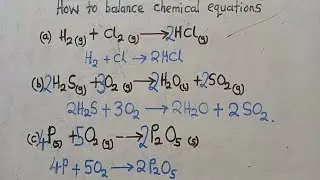 How to balance chemical equations
(a) H₂(g) + Cl₂(g) → 2HCl(g)
H₂ + Cl → 2HCl
(b) 2H₂S(g) + 3O₂(g) → 2H₂O(l) + 2SO₂(g)
2H₂S + 3O₂ → 2H₂O + 2SO₂.
(c) 4P(s) + 5O₂(g) → 2P₂O₅(s)
4P + 5O₂ → 2P₂O₅